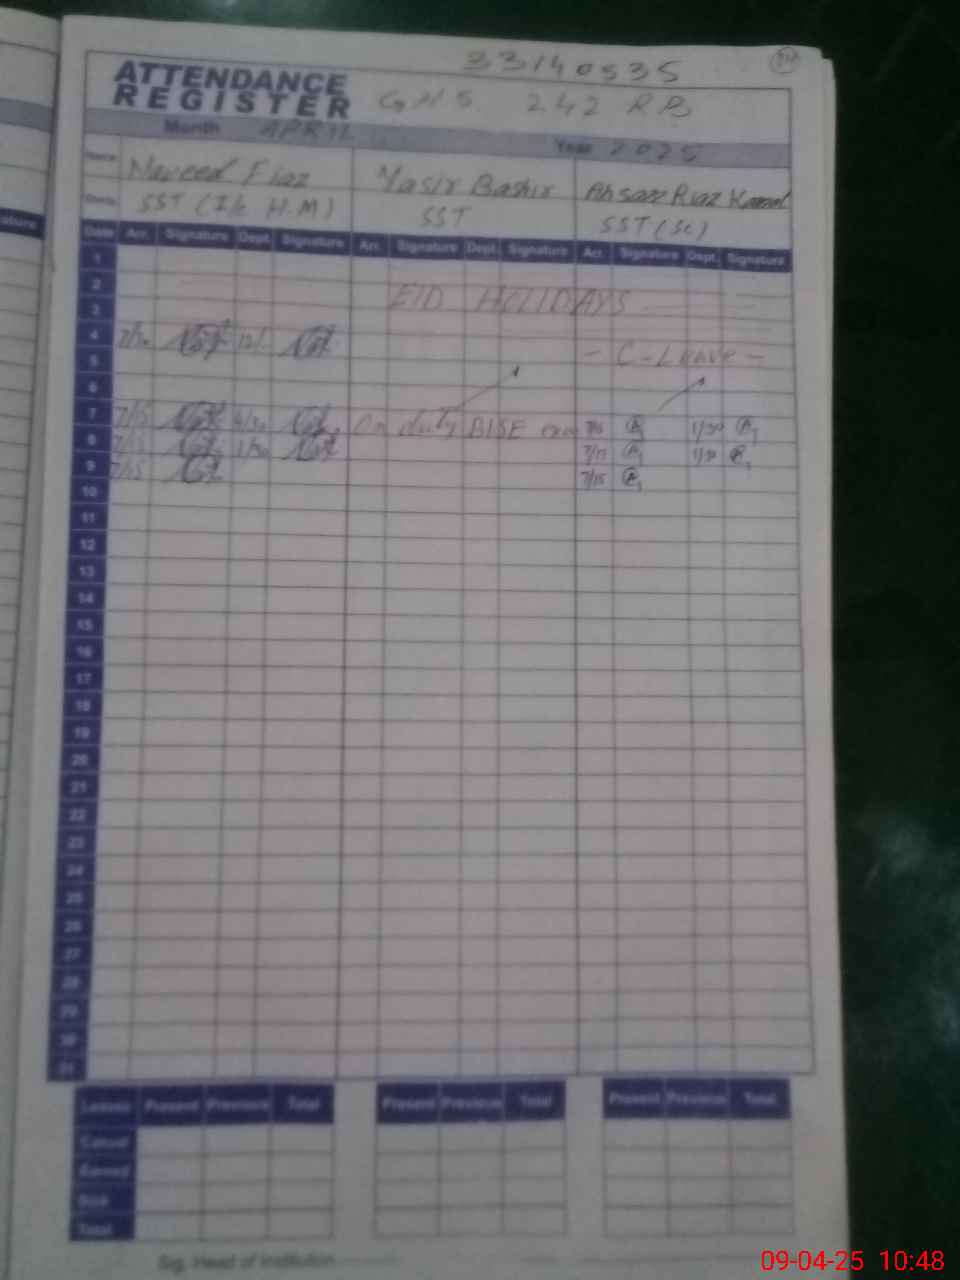 33140535
ATTENDANCE
REGISTER
GHS 242 RB
Month APRIL Year 2025
Name Naveed Fiaz Yasir Bashir Ahsan Riaz Kamal
SST (I/c H.M) SST SST (Sc)
Date Arr. Signature Dept. Signature Arr. Signature Dept. Signature Arr. Signature Dept. Signature
1
2
EID HOLIDAYS
3
4 12/-
5 - C-Leave -
6
7 7/15 On duty BISE 1/30
8 7/15 1/30 7/15 1/30
9 7/15 7/15
10
11
12
13
14
15
16
17
18
19
20
21
22
23
24
25
26
27
28
29
30
31
Leaves Present Previous Total Present Previous Total Present Previous Total
Casual
Earned
Sick
Total
Sig. Head of Institution
09-04-25 10:48